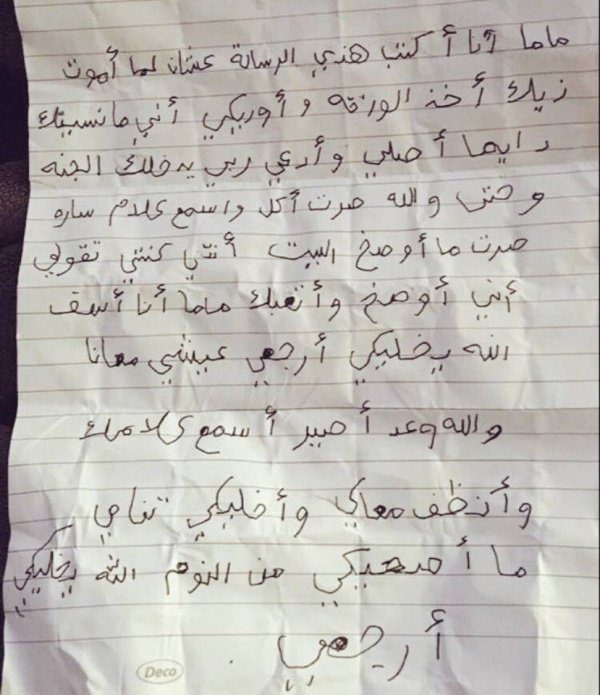 ماما أنا أكتب هذي الرسالة عشان لما أموت
زيك أخذ الورقه وأوريكي أني ما نسيتك
دايما أصلي وأدعي ربي يدخلك الجنه
وحتى والله صرت أكل واسمع كلام ساره
صرت ما أوصخ البيت أنتي كنتي تقولي
أني أوصخ وأتعبك ماما أنا أسف
الله يخليكي أرجعي عيشي معانا
والله وعد أصير أسمع كلامك
وأنظف معاكي وأخليكي تنامي
ما أصحيكي من النوم الله يخليكي
أرجعي
Deco